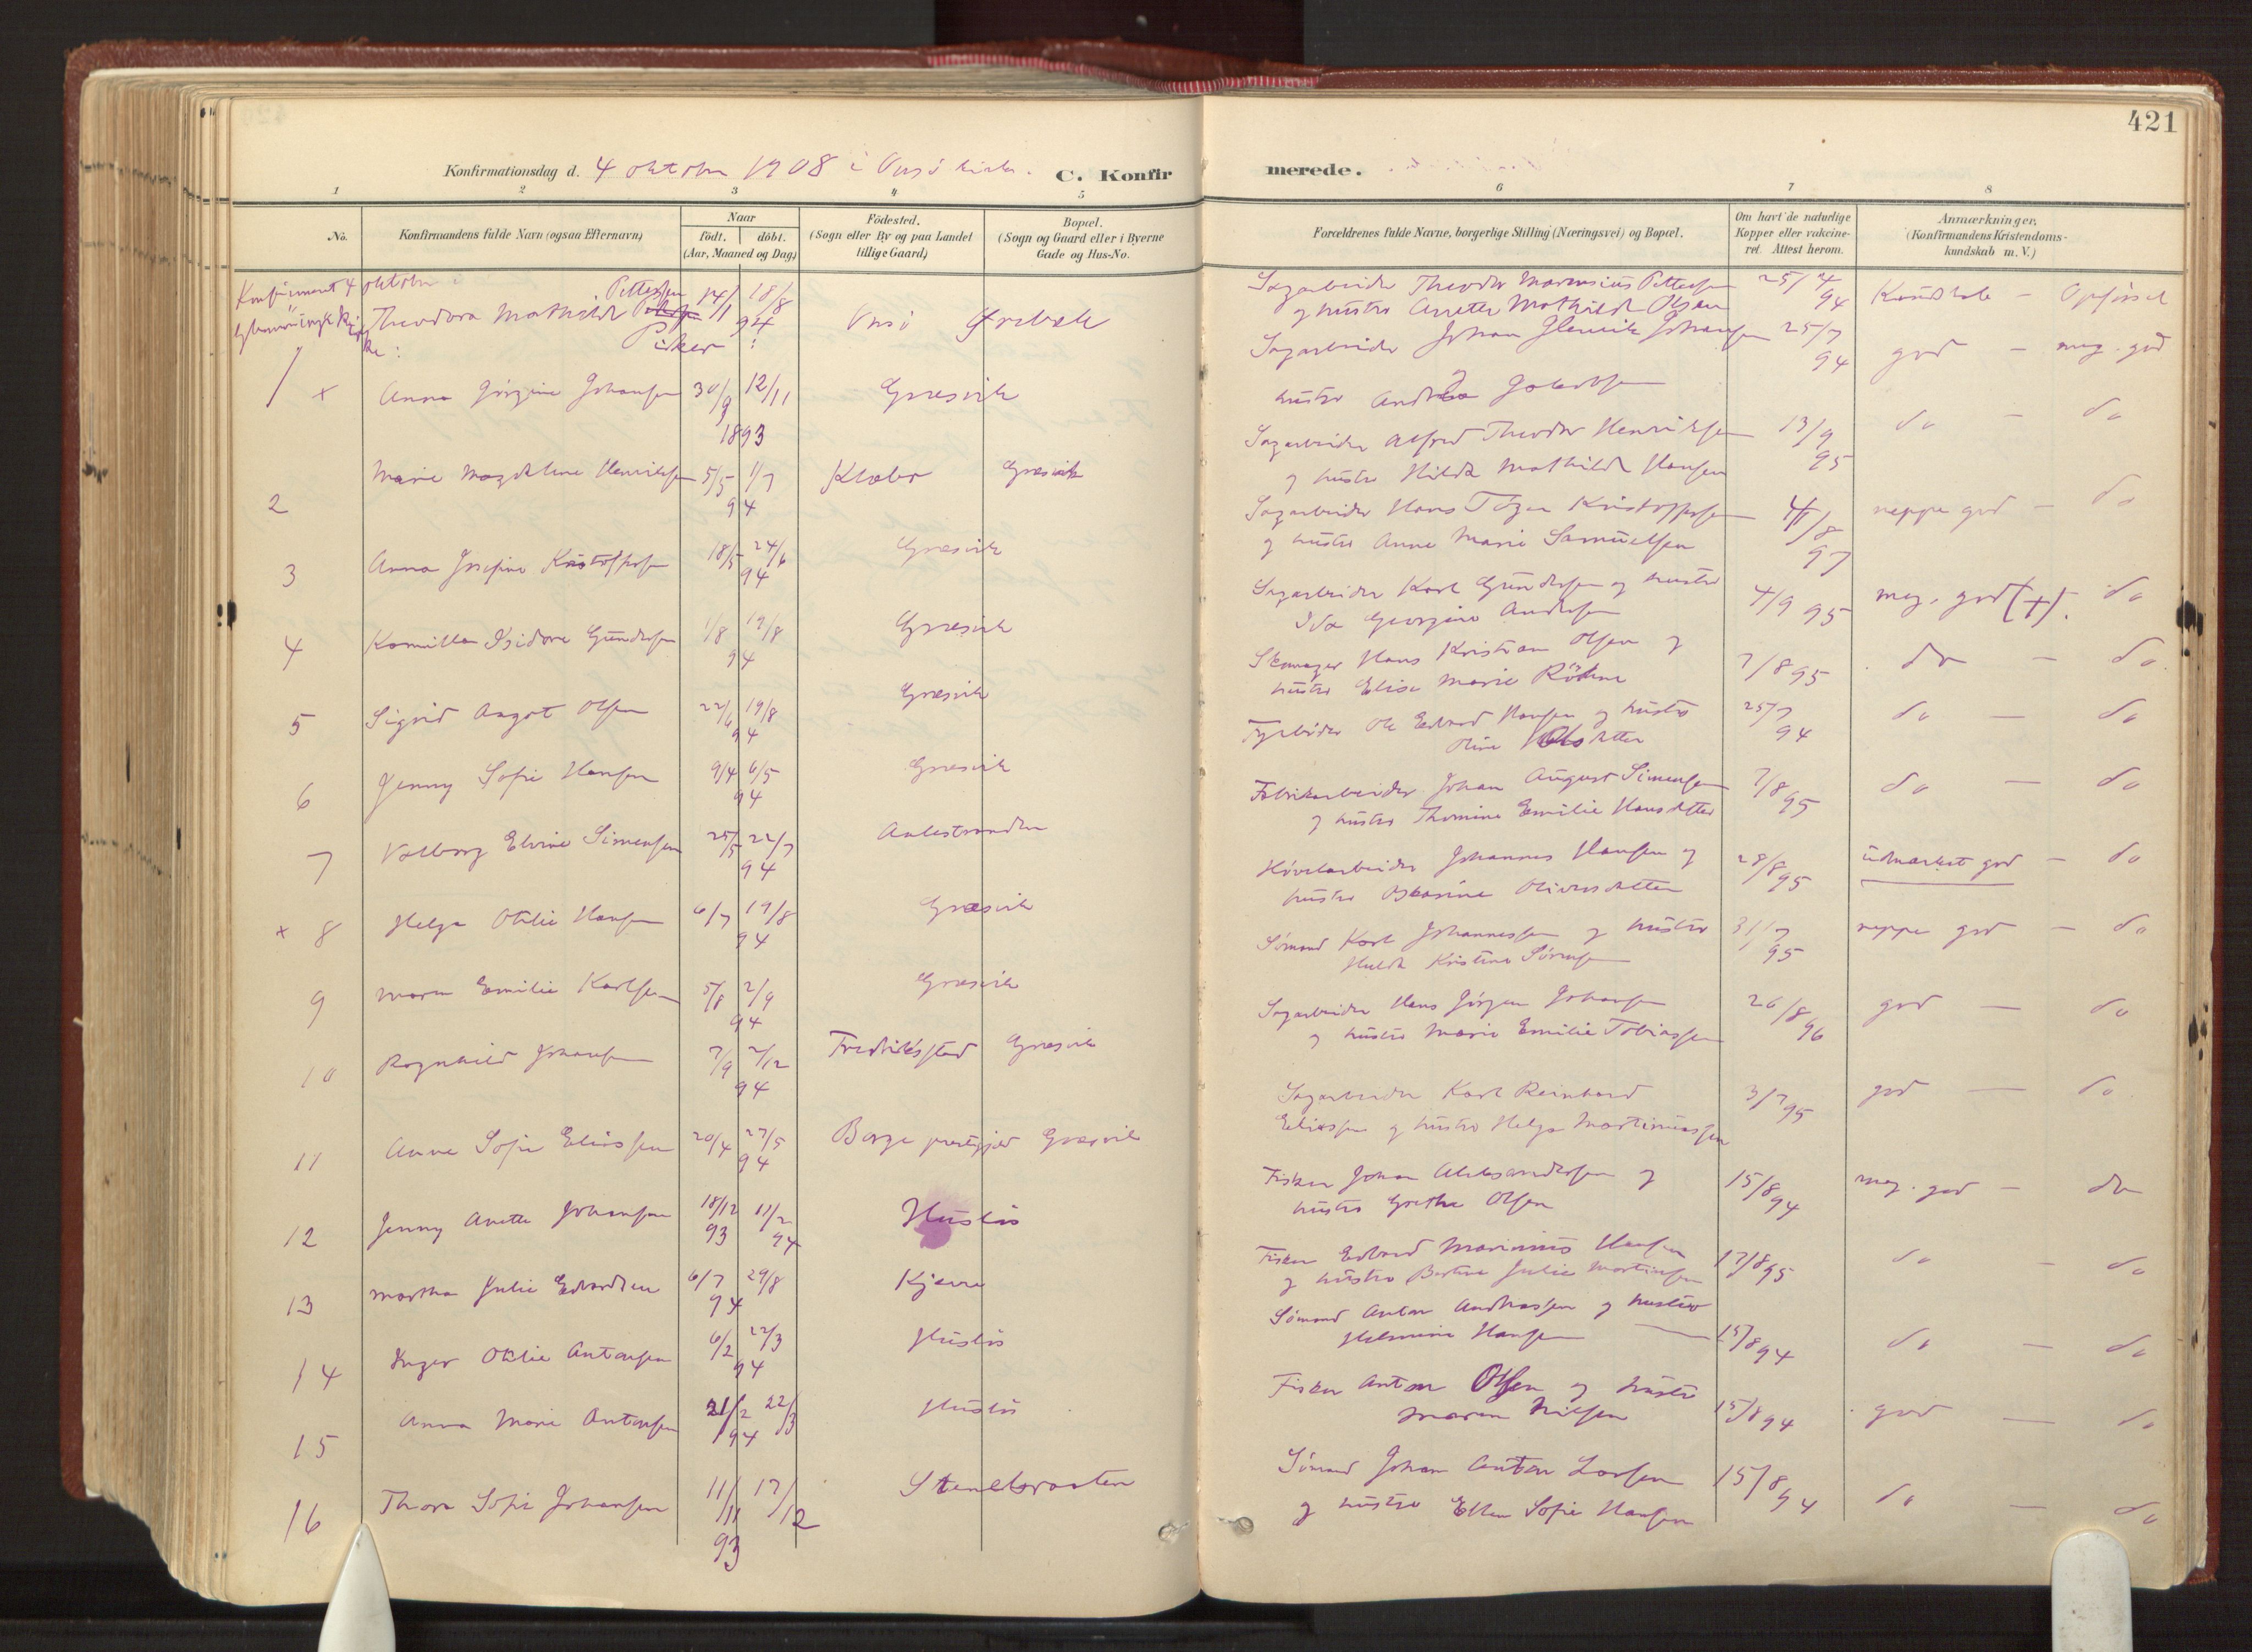 421
Konfirmationsdag d. 4 oktober 1908 i Onsö kirke. C. Konfirmerede.
1 2 3 4 5 6 7 8
No.
Konfirmandens fulde Navn (ogsaa Efternavn)
Naar
födt. döbt.
(Aar, Maaned og Dag)
Födested.
(Sogn eller By og paa Landet
tillige Gaard)
Bopæl.
(Sogn og Gaard eller i Byerne
Gade og Hus-No.
Forældrenes fulde Navne, borgerlige Stilling (Næringsvei) og Bopæl.
Om havt de naturlige
Kopper eller vakcine-
ret. Attest herom.
Anmærkninger,
(Konfirmandens Kristendoms-
kundskab m. V.)
Konfirmeret 4 oktober
Theodora Mathilde Pettersen 14/1 18/8 94 Onsö
Sagarbeider Theodor Marensius Pettersen
og hustru Anette Mathilde Olsen
25/7 94 Kundskab – Opførsel
Piker:
1 x Anna Jörgine Johansen 30/9 12/11 1893 Græsvik
Sagarbeider Johan Henrik Johansen
hustru Andrea Jakobsen
25/7 94 god – meg. god
2 Marie Magdalene Henriksen 5/5 1/7 94 Græsvik
Sagarbeider Alfred Theodor Henriksen
og hustru Hilda Mathilde Hansen
13/9 95 do – do
3 Anna Josefine Kristoffersen 18/5 24/6 94 Græsvik
Sagarbeider Hans Kristoffersen
og hustru Anne Marie Samuelsen
8 97 neppe god – do
4 Kamilla Isidora Gundersen 1/8 19/8 94 Græsvik
Sagarbeider Karl Gundersen og hustru
Ida Georgine Andersen
4/9 95 meg. god (+). do
5 Sigrid Aagot Olsen 22/6 19/8 94 Græsvik
Hans Kristian Olsen og
hustru Elise Marie
7/8 95 do – do
6 Jenny Sofie Hansen 9/4 6/5 94 Græsvik
Fyrböder Ole Edvard Hansen og hustru
Oline
25/7 94 do – do
7 Valborg Elvine Simensen 25/5 22/7 94 Aalestranden
Fabrikarbeider Johan August Simensen
og hustru Thomine Emilie Hansdatter
7/8 95 do – do
x 8 Helga Otilie Hansen 6/7 19/8 94 Græsvik
Hövelarbeider Johannes Hansen og
hustru Oskarine Oliversdatter
28/8 95 udmærket god – do
9 Maren Emilie Karlsen 5/8 2/9 94 Græsvik
Sömand Karl Johannessen og hustru
Hulda Kristine Sörensen
31/7 95 neppe god – do
10 Ragnhild Johansen 7/9 2/12 94 Fredrikstad Græsvik
Sagarbeider Hans Jörgen Johansen
og hustru Marie Emilie Tobiassen
26/8 96 god – do
11 Anne Sofie Eliassen 20/4 27/5 94 Borge prestegjeld Græsvik
Sagarbeider Karl Reinhard
Eliassen og hustru Helga Martinussen
3/7 95 god – do
12 Jenny Anette Johansen 18/12 93 11/2 94 Huslös
Fisker Johan Aleksandersen og
hustru Grethe Olsen
15/8 94 meg. god – do
13 Martha Julie Edvardsen 6/7 29/8 94 Kjerre
Fisker Edvard Marinius Hansen
og hustru Bertine Julie Martinsen
17/8 95 do – do
14 Inger Otilie Antonsen 6/2 22/3 94 Huslös
Sömand Anton Andreassen og hustru
Helmine Hansen
15/8 94 do – do
15 Anna Marie Antonsen 21/2 22/3 94 Huslös
Fisker Anton Olsen og hustru
Maren Nilsen
15/8 94 god – do
16 Thora Sofie Johansen 11/11 17/12 93 Stenelsraaten
Sömand Johan Anton Larsen
og hustru Ellen Sofie Hansen
15/8 94 do – do